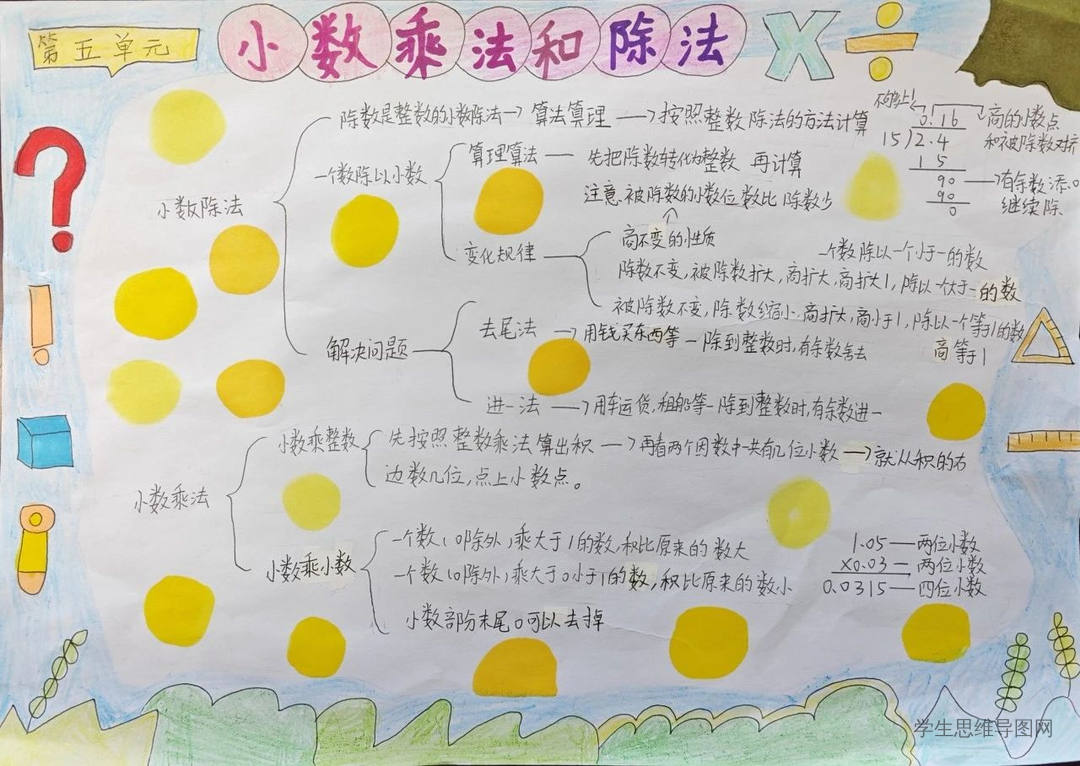 第五单元
小数乘法和除法
X ÷
小数除法
除数是整数的小数除法→算法算理→按照整数除法的方法计算
不够上1
0.16
15)2.4
15
90
90
0
高的小数点
和被除数对齐
有余数添0
继续除
一个数除以小数
算理算法—先把除数转化为整数 再计算
注意.被除数的小数位数比除数少
变化规律
高不变的性质
一个数除以一个小于一的数
除数不变,被除数扩大,高扩大,高扩大1,除以一个大于一的数
被除数不变,除数缩小.高扩大,高小于1,除以一个等1的数
高等于1
解决问题
去尾法→用钱买东西等—除到整数时,有余数舍去
进一法→用车运货,租船等—除到整数时,有余数进一
小数乘法
小数乘整数
先按照整数乘法算出积→再看两个因数中一共有几位小数→就从积的右
边数几位,点上小数点。
小数乘小数
一个数(0除外)乘大于1的数,积比原来的数大
一个数(0除外)乘大于0小于1的数,积比原来的数小
小数部份末尾0可以去掉
1.05—两位小数
x0.03—两位小数
0.0315—四位小数
学生思维导图网